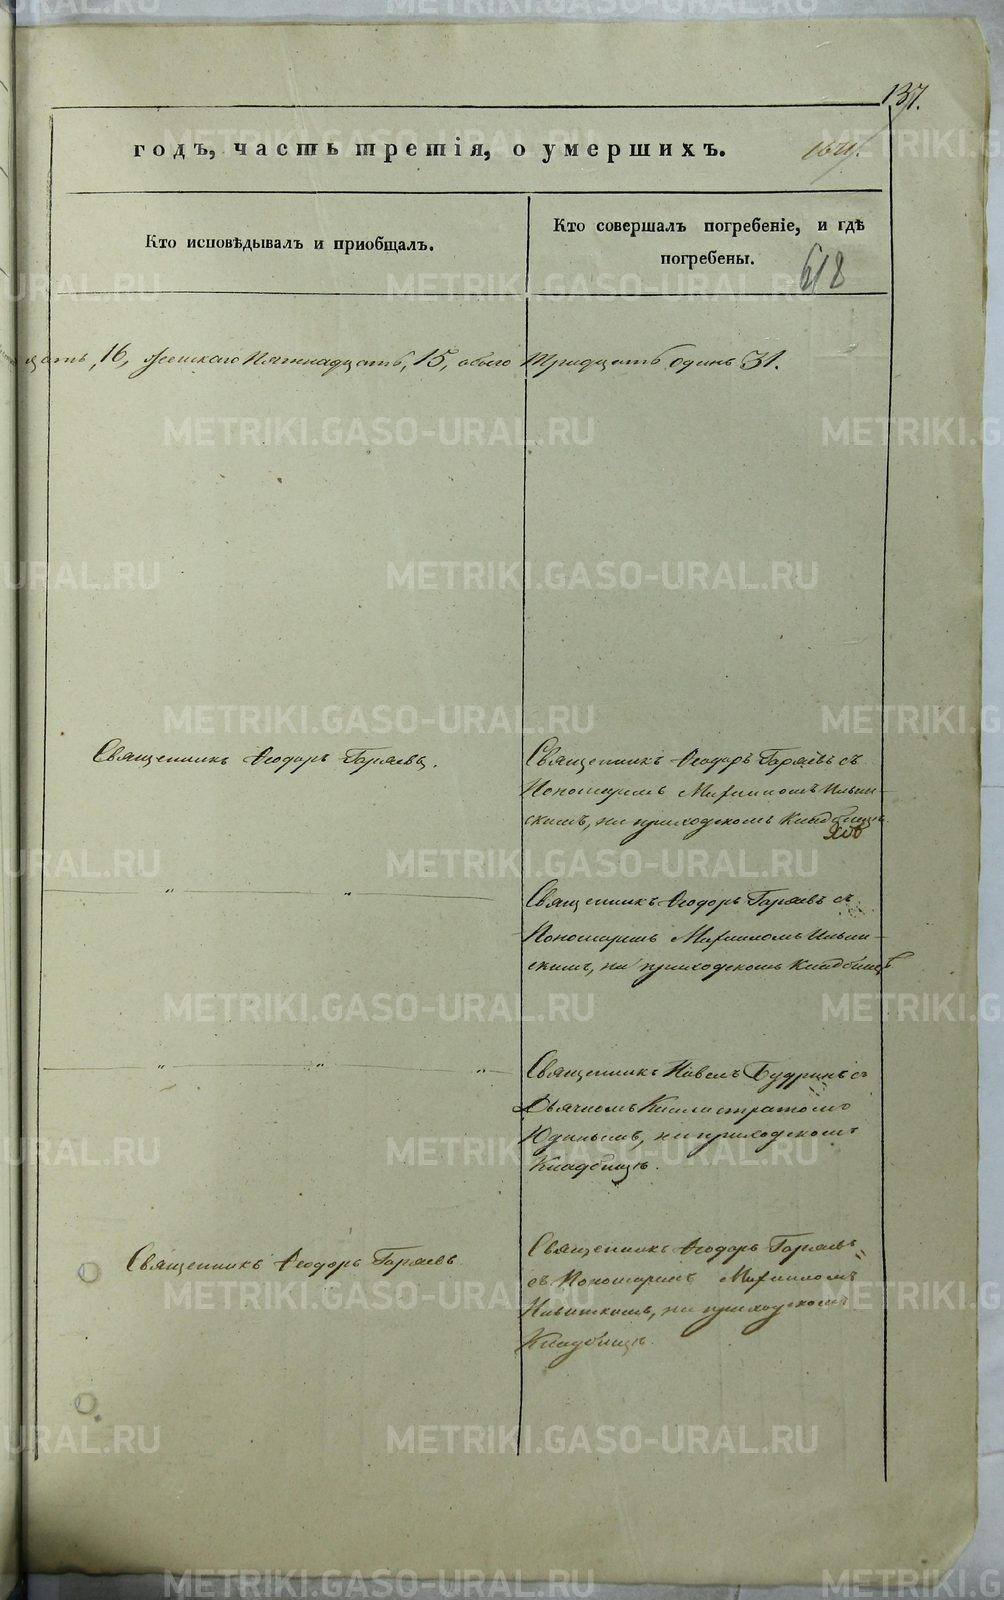 137.
годъ, часть третія, о умершихъ.
Кто исповѣдывалъ и приобщалъ.
Кто совершалъ погребеніе, и гдѣ
погребены.
618
цать, 16, женскаго Пятнадцать, 15, обоего Тридцать одинъ 31.
Священникъ Ѳеодоръ Горяевъ.
Священникъ Ѳеодоръ Горяевъ съ
Пономаремъ Михаиломъ Ильин-
скимъ, на приходскомъ Кладбищѣ
" "
Священникъ Ѳеодоръ Горяевъ съ
Пономаремъ Михаиломъ Ильин-
скимъ, на приходскомъ Кладбищѣ
" " "
Священникъ Павелъ Будринъ съ
Дьячкомъ Каллистратомъ
Юдинымъ, на приходскомъ
Кладбищѣ.
Священникъ Ѳеодоръ Горяевъ
Священникъ Ѳеодоръ Горяевъ
съ Пономаремъ Михаиломъ
на приходскомъ
Кладбищѣ.
METRIKI.GASO-URAL.RU